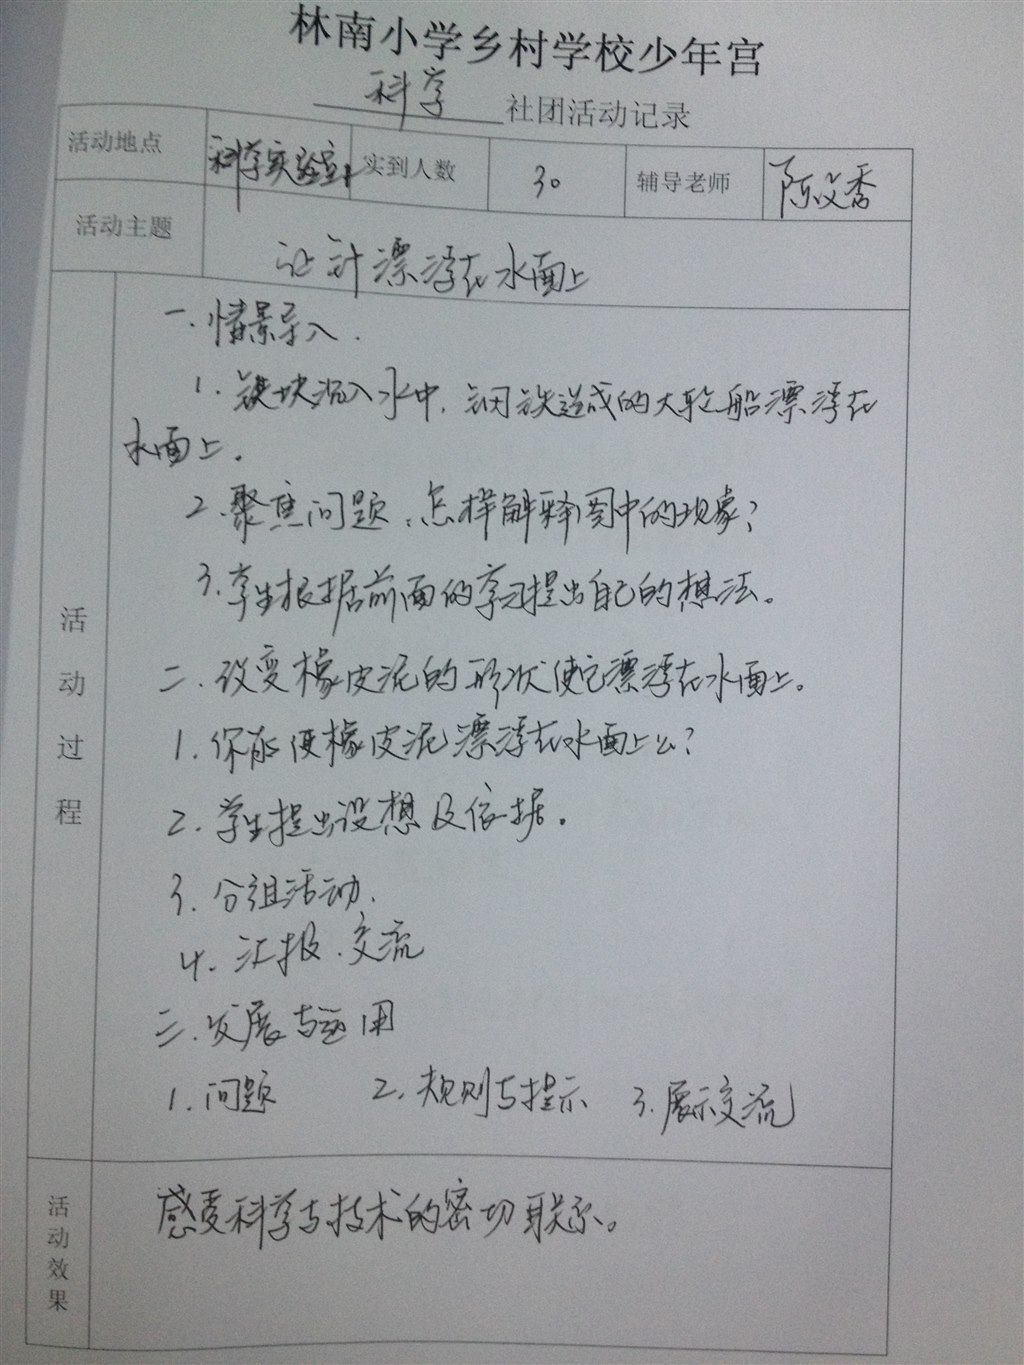 林南小学乡村学校少年宫
科学 社团活动记录
活动地点 科学实验室 实到人数 30 辅导老师 陈文香
活动主题 让针漂浮在水面上
活动过程
一.情景导入.
1.铁块沉入水中,钢铁造成的大轮船漂浮在
水面上。
2.聚焦问题:怎样解释图中的现象?
3.学生根据前面的学习提出自己的想法。
二.改变橡皮泥的形状使它漂浮在水面上。
1.你能使橡皮泥漂浮在水面上么?
2.学生提出设想及依据。
3.分组活动.
4.汇报.交流
三.发展与运用
1.问题 2.规则与提示 3.展示交流
活动效果
感受科学与技术的密切联系。